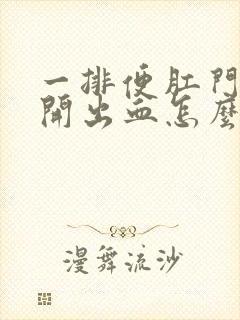 一排便肛門
開出血怎麼
漫舞流沙